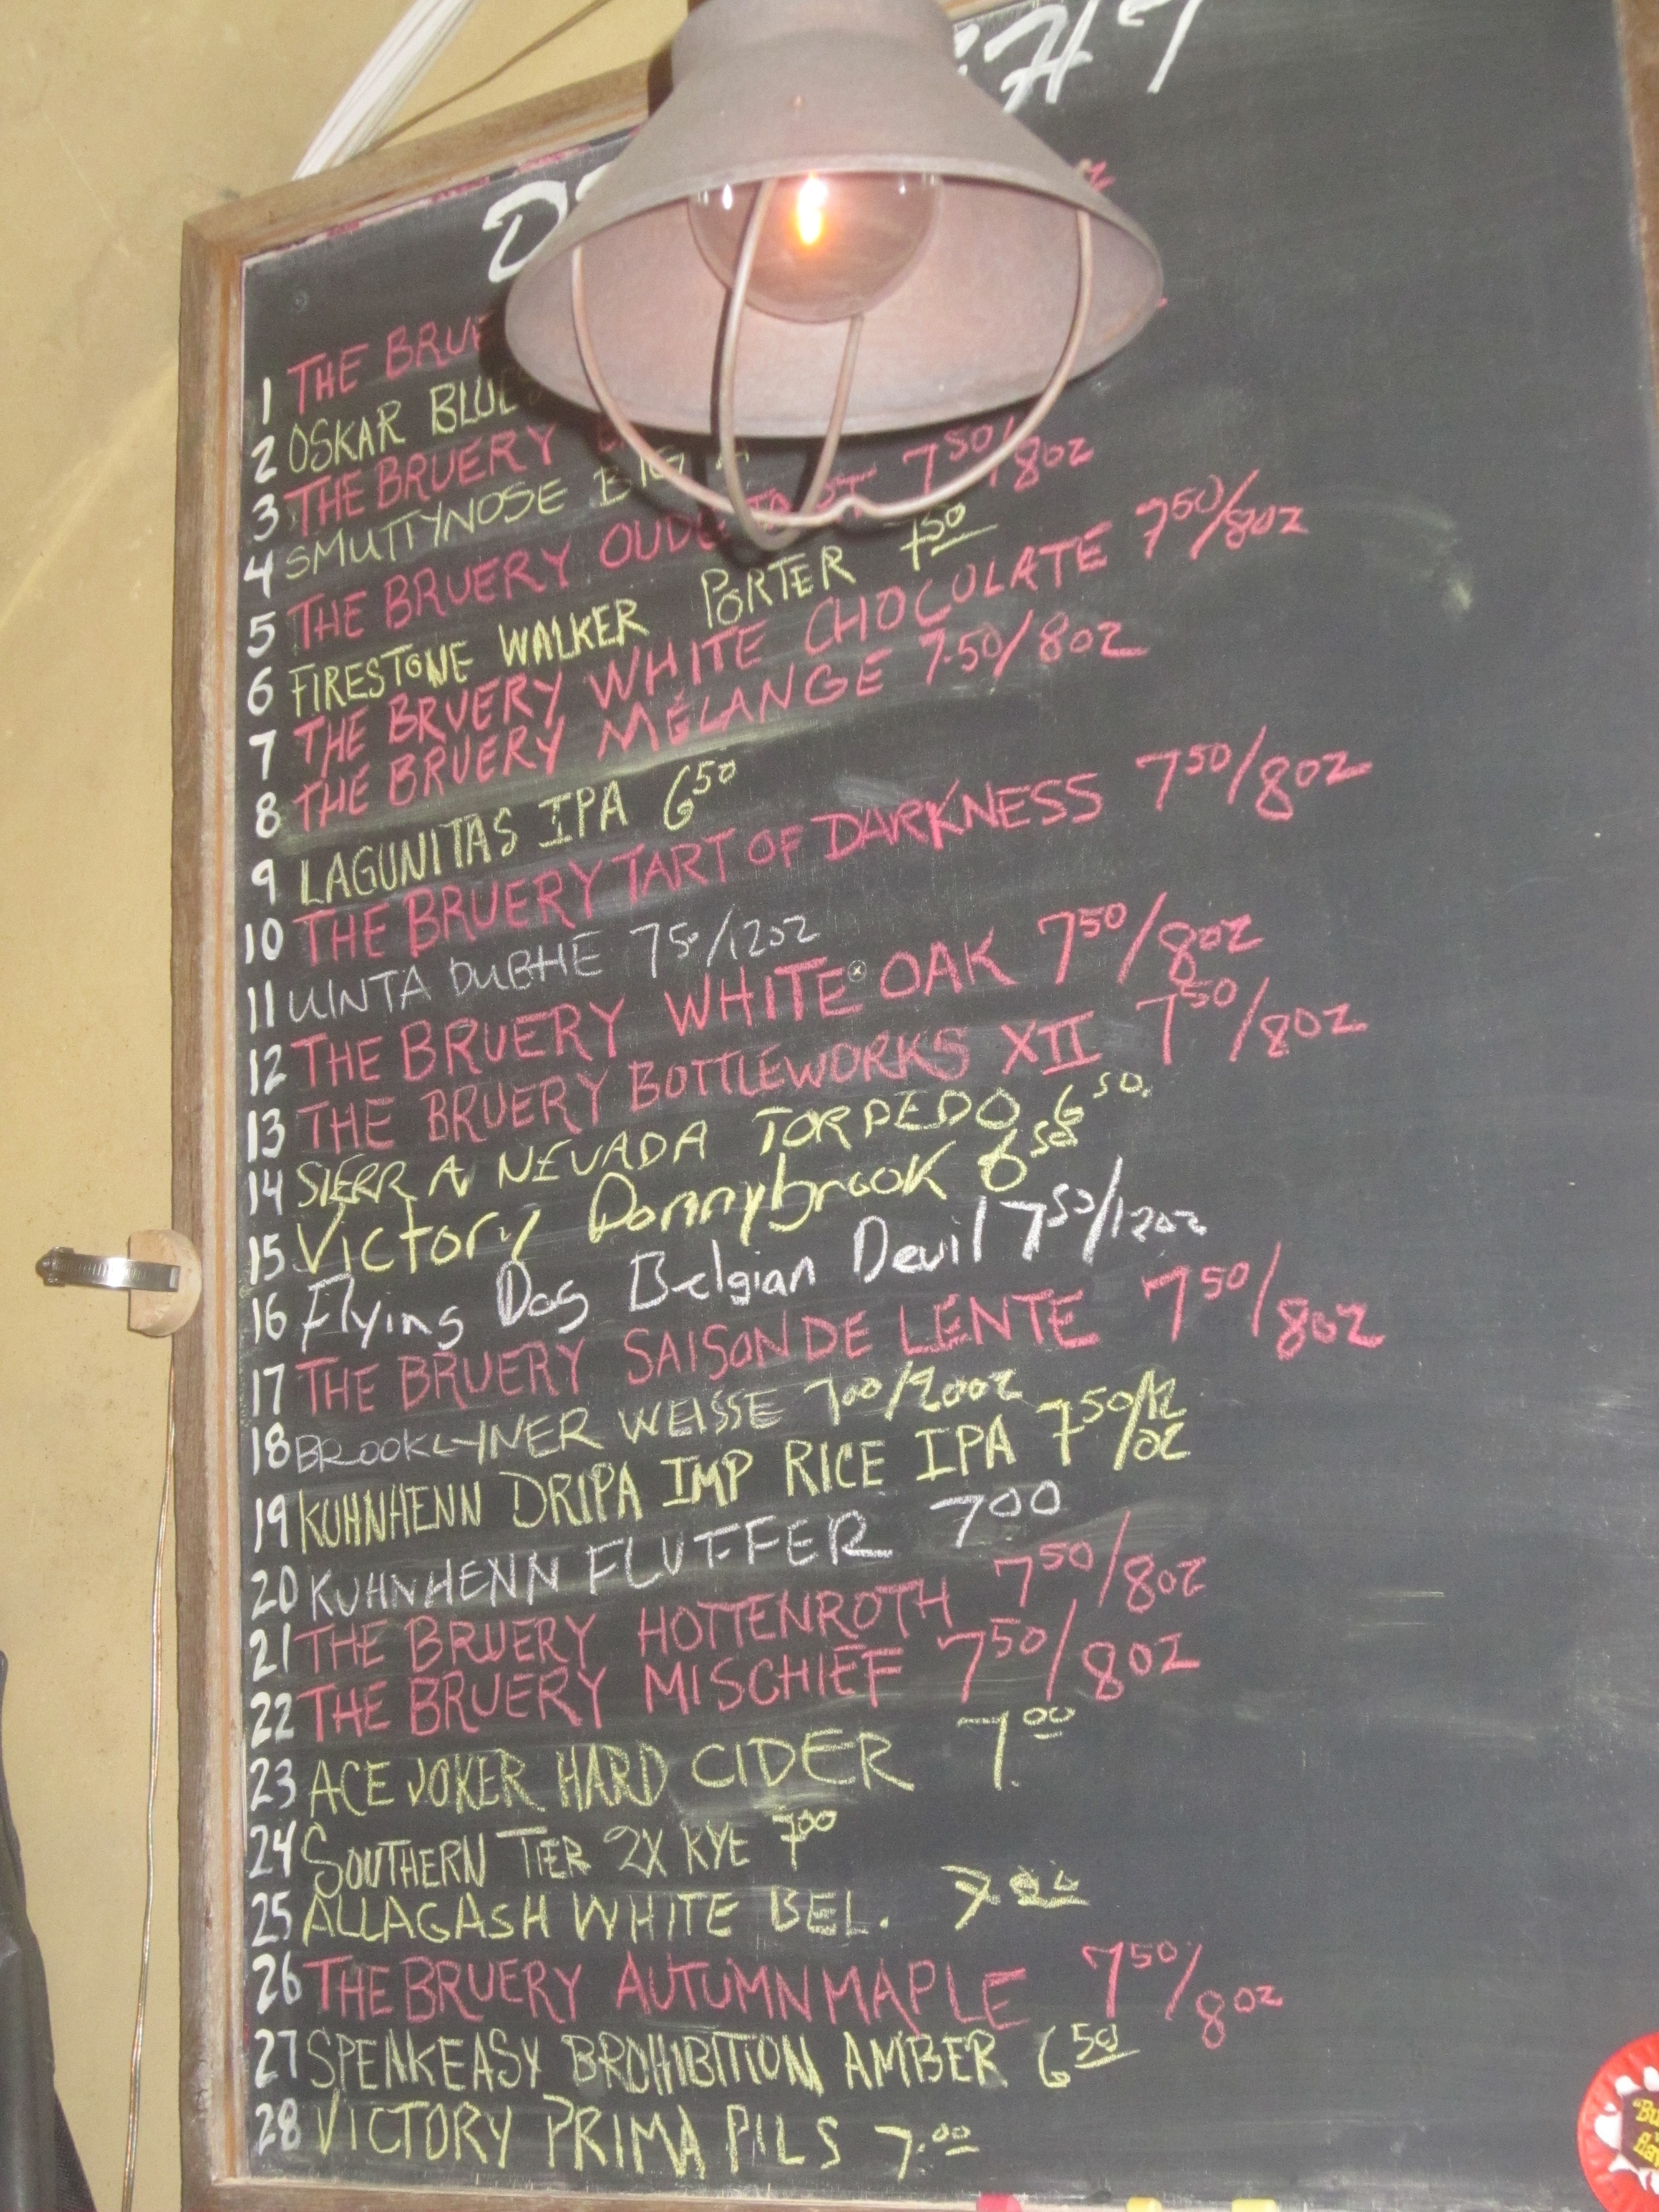 1 THE BRUE
2 OSKAR BLUES
3 THE BRUERY
4 SMUTTYNOSE BIG A
5 THE BRUERY OUDE TART 7 50/8oz
6 FIRESTONE WALKER PORTER 7 50
7 THE BRUERY WHITE CHOCOLATE 7 50/8oz
8 THE BRUERY MÉLANGE 7.50/8oz
9 LAGUNITAS IPA 6 50
10 THE BRUERY TART OF DARKNESS 7 50/8oz
11 UINTA DUBHE 7 50/12oz
12 THE BRUERY WHITE OAK 7 50/8oz
13 THE BRUERY BOTTLEWORKS XII 7 50/8oz
14 SIERRA NEVADA TORPEDO 6 50
15 Victory Donnybrook 6 50
16 Flying Dog Belgian Devil 7 50/12oz
17 THE BRUERY SAISON DE LENTE 7 50/8oz
18 BROOKLYNER WEISSE 7 00/20oz
19 KUHNHENN DRIPA IMP RICE IPA 7 50/12 oz
20 KUHNHENN FLUFFER 7 00
21 THE BRUERY HOTTENROTH 7 50/8oz
22 THE BRUERY MISCHIEF 7 50/8oz
23 ACE JOKER HARD CIDER 7.00
24 SOUTHERN TIER 2X RYE 7 00
25 ALLAGASH WHITE BEL. 7.00
26 THE BRUERY AUTUMN MAPLE 7 50/8oz
27 SPEAKEASY BROHIBITION AMBER 6 50
28 VICTORY PRIMA PILS 7.00